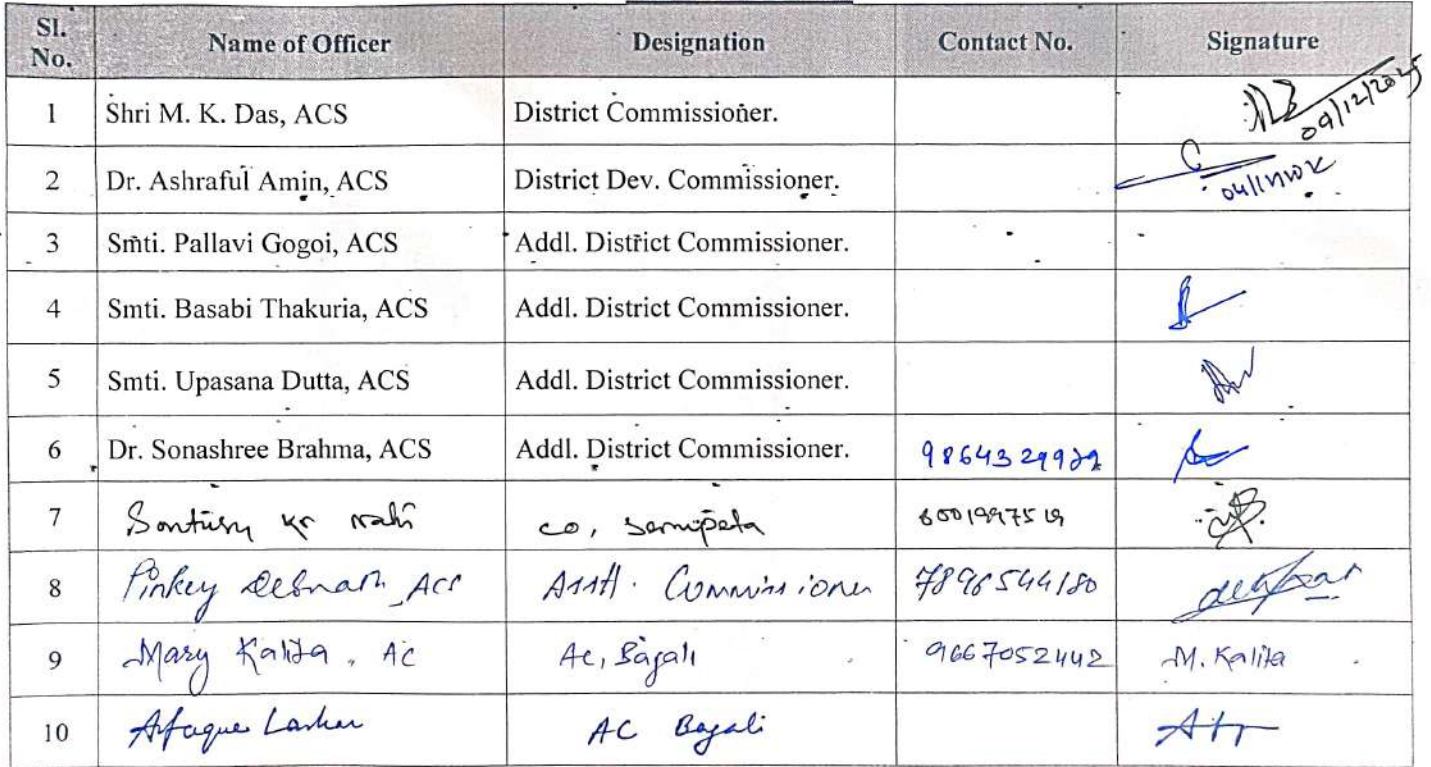 Sl. No. Name of Officer Designation Contact No. Signature
1 Shri M. K. Das, ACS District Commissioner. 09/12/2025
2 Dr. Ashraful Amin, ACS District Dev. Commissioner.
3 Smti. Pallavi Gogoi, ACS Addl. District Commissioner.
4 Smti. Basabi Thakuria, ACS Addl. District Commissioner.
5 Smti. Upasana Dutta, ACS Addl. District Commissioner.
6 Dr. Sonashree Brahma, ACS Addl. District Commissioner.
7 co,
8 Pinkey Debnath, ACS Asstt. Commissioner 7896544180
9 Mary Kalita, AC AC, 9667052442 M. Kalita
10 Afaque Laskar AC